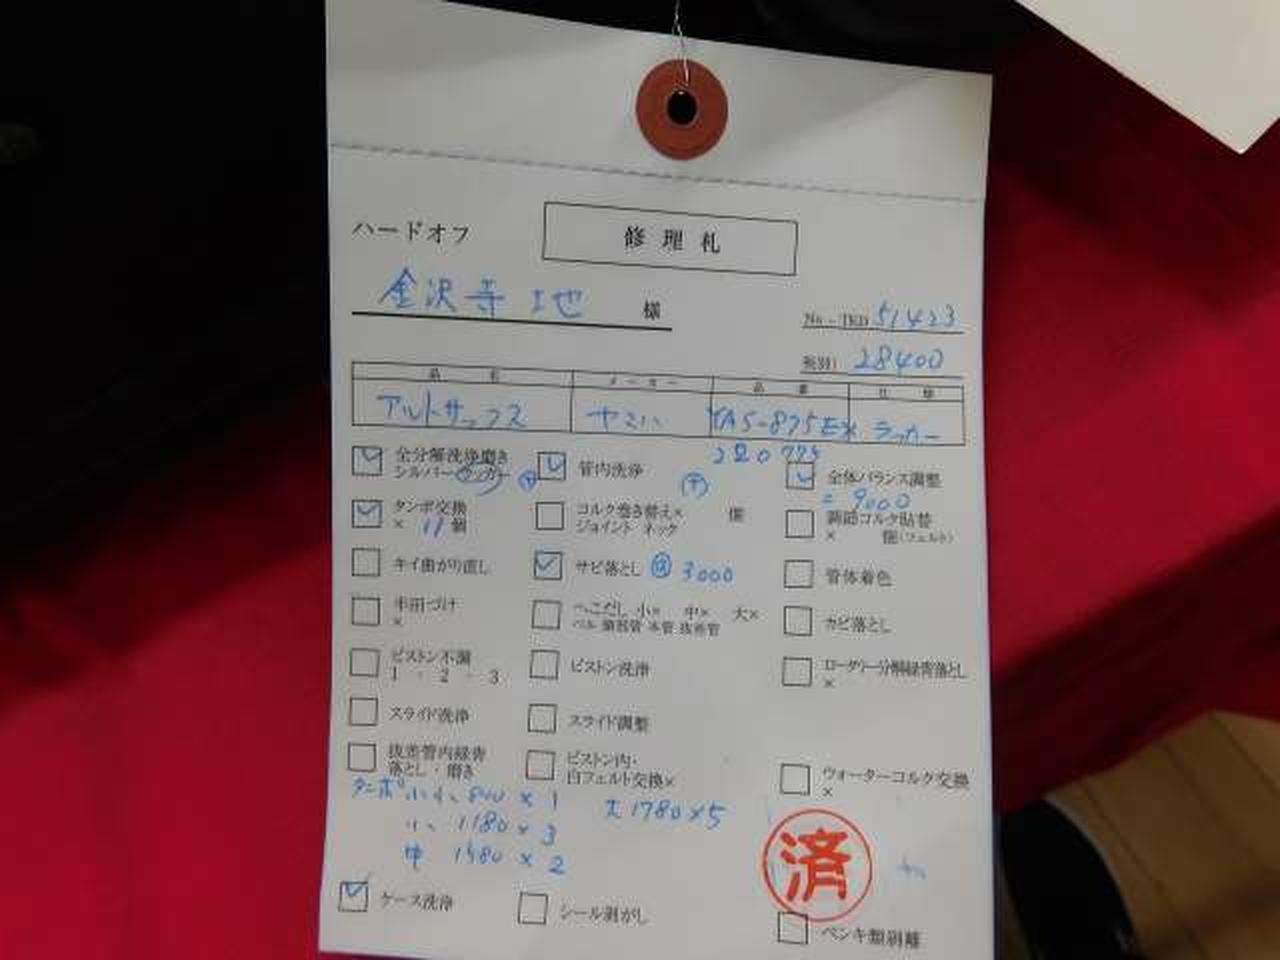 ハードオフ
修理札
金沢寺地 様
No-TKD 51423
税別: 28400
品名 メーカー 品番 仕様
アルトサックス ヤマハ YAS-875EX ラッカー
全分解洗浄磨き
シルバー ラッカー
管内洗浄
全体バランス調整
= 9000
タンポ交換
× 11個
コルク巻き替え× 個
ジョイント ネック
調節コルク貼替
× 個(フェルト)
キイ曲がり直し
サビ落とし @ 3000
管体着色
半田づけ
×
へこだし 小× 中× 大×
ベル 頭部管 本管 抜差管
カビ落とし
ピストン不漏
1 ・ 2 ・ 3
ピストン洗浄
ロータリー分解緑青落とし
×
スライド洗浄
スライド調整
抜差管内緑青
落とし・磨き
ピストン内・
白フェルト交換×
ウォーターコルク交換
×
タンポ 小小 800 × 1
大 1780×5
小 1180 × 3
中 1480 × 2
済
ケース洗浄
シール剥がし
ペンキ類剥離